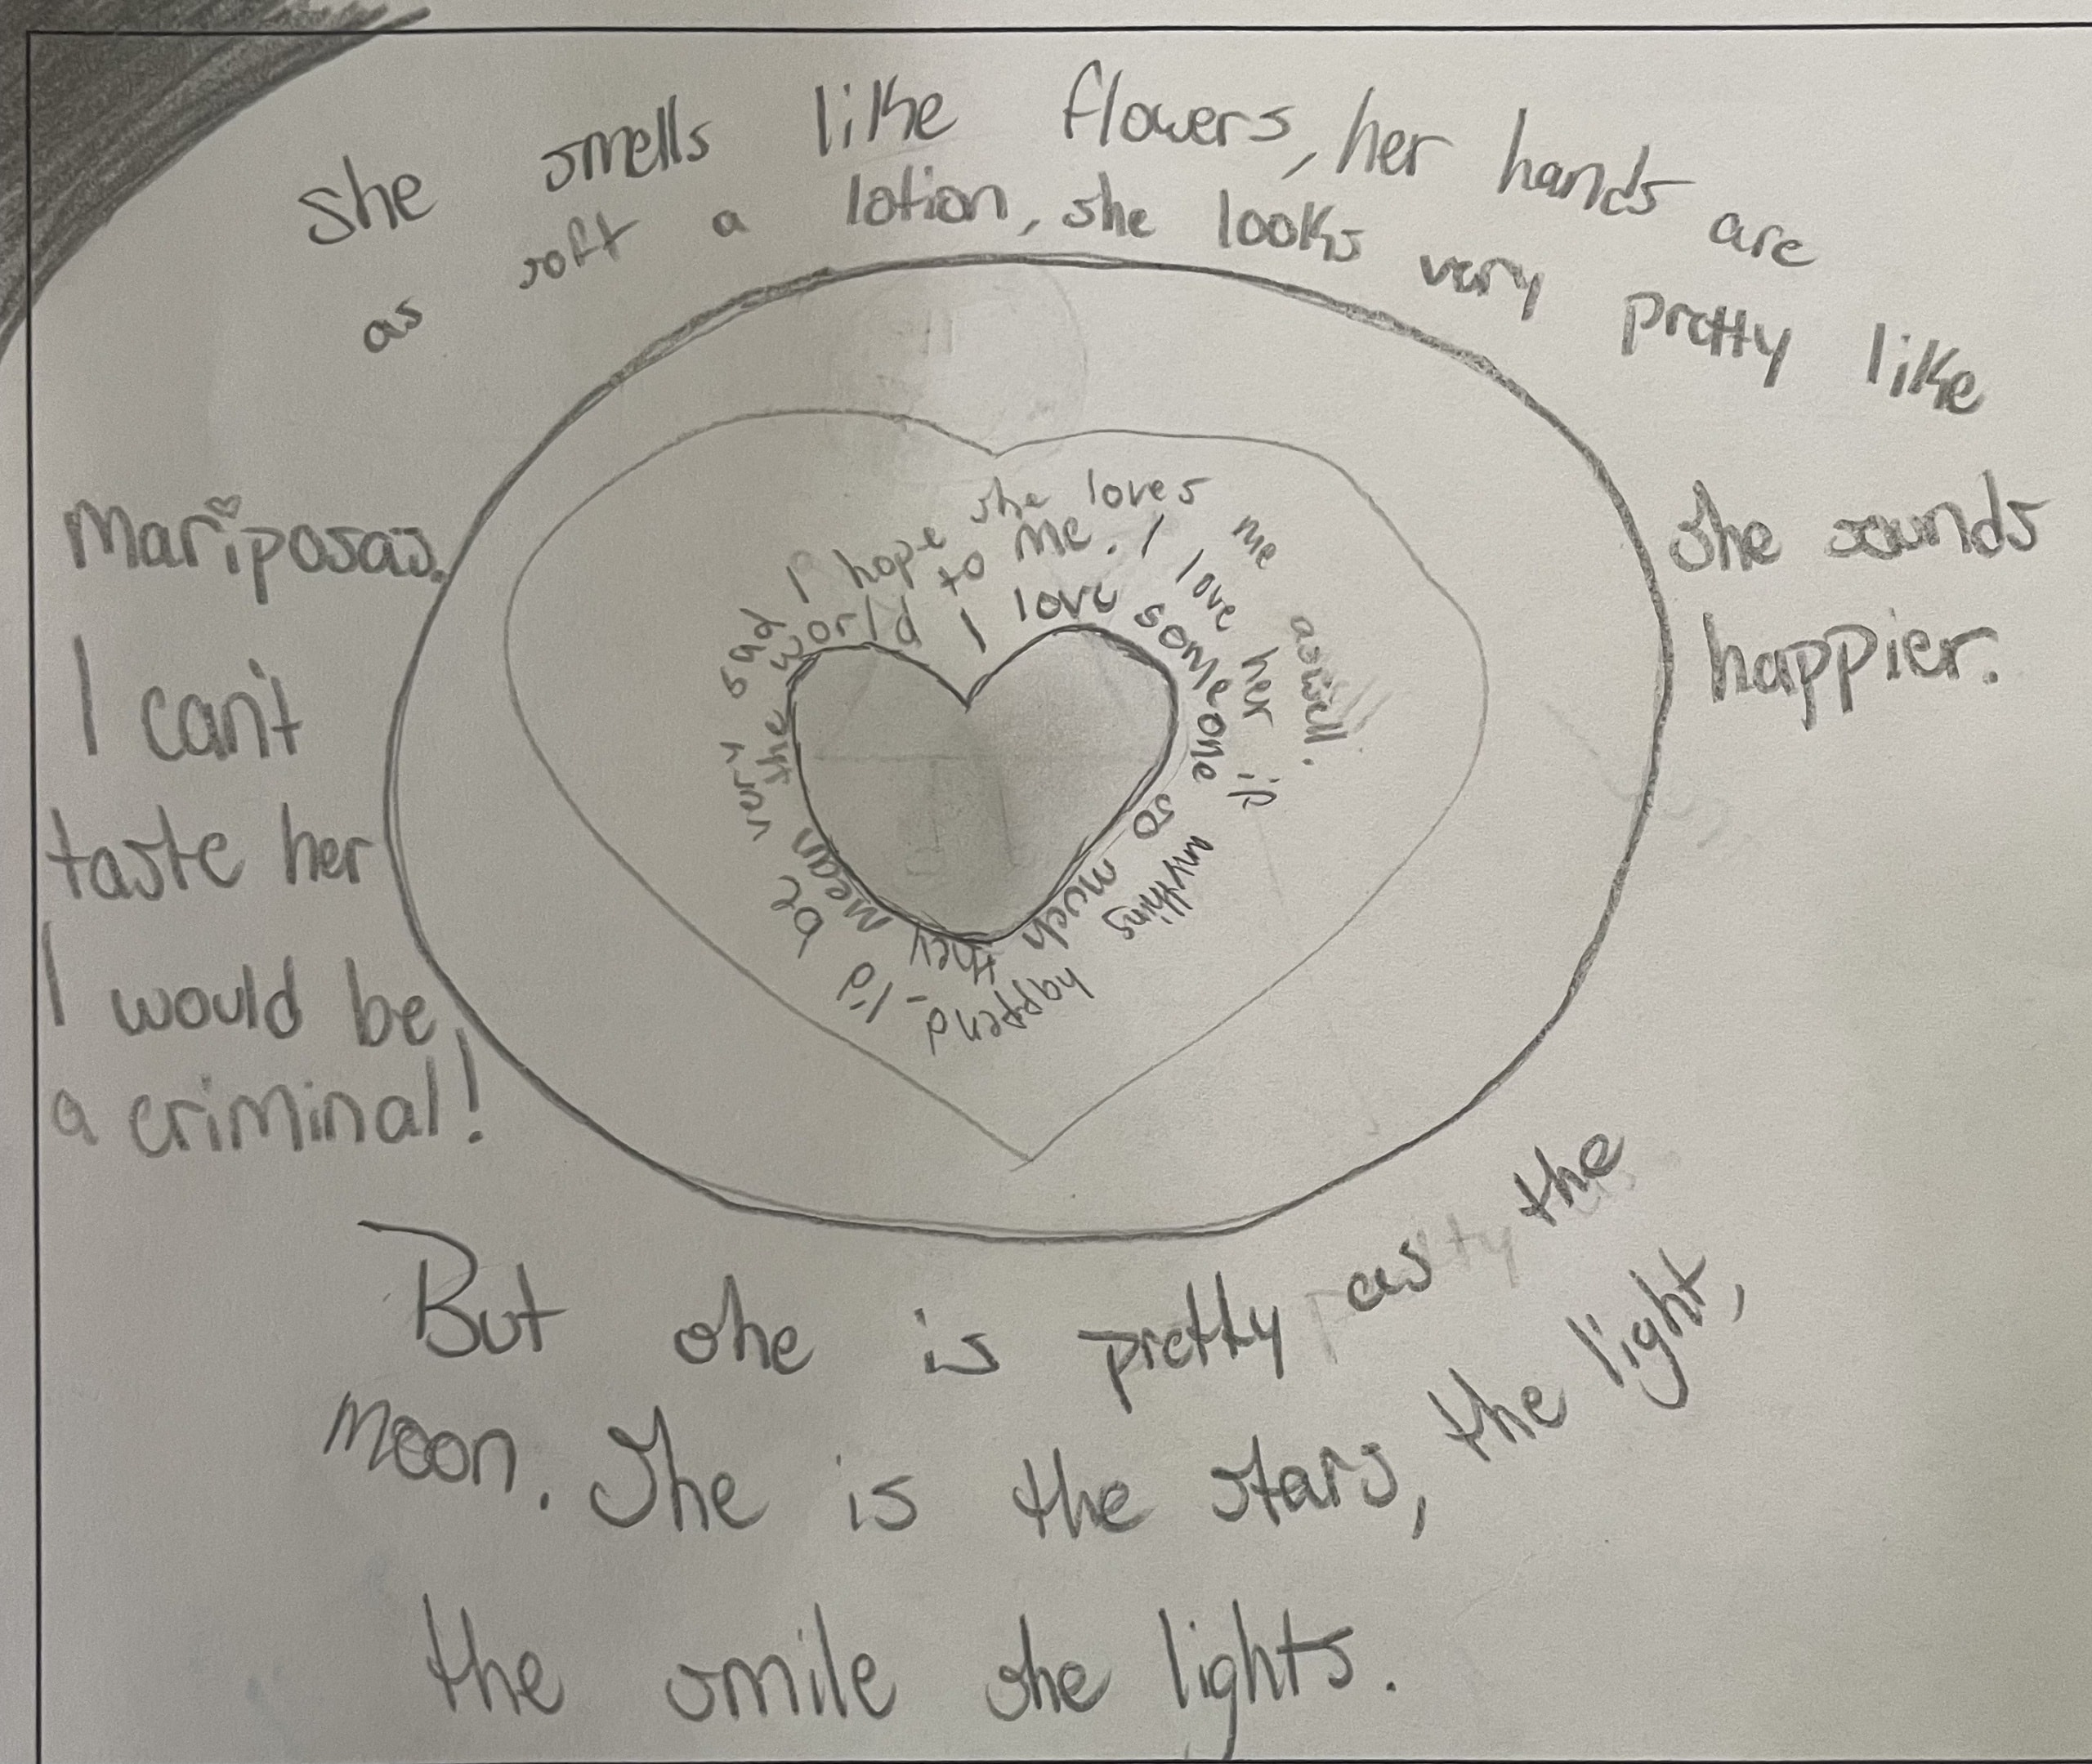 she smells like flowers, her hands are
as soft a lotion, she looks very pretty like
mariposas.
She sounds
happier.
I can't
taste her
I would be
a criminal!
I love someone so much they mean the world to me. I love her if anything happend I'd be very sad I hope she loves me aswell.
But she is pretty as the
moon. She is the stars, the light,
the smile she lights.